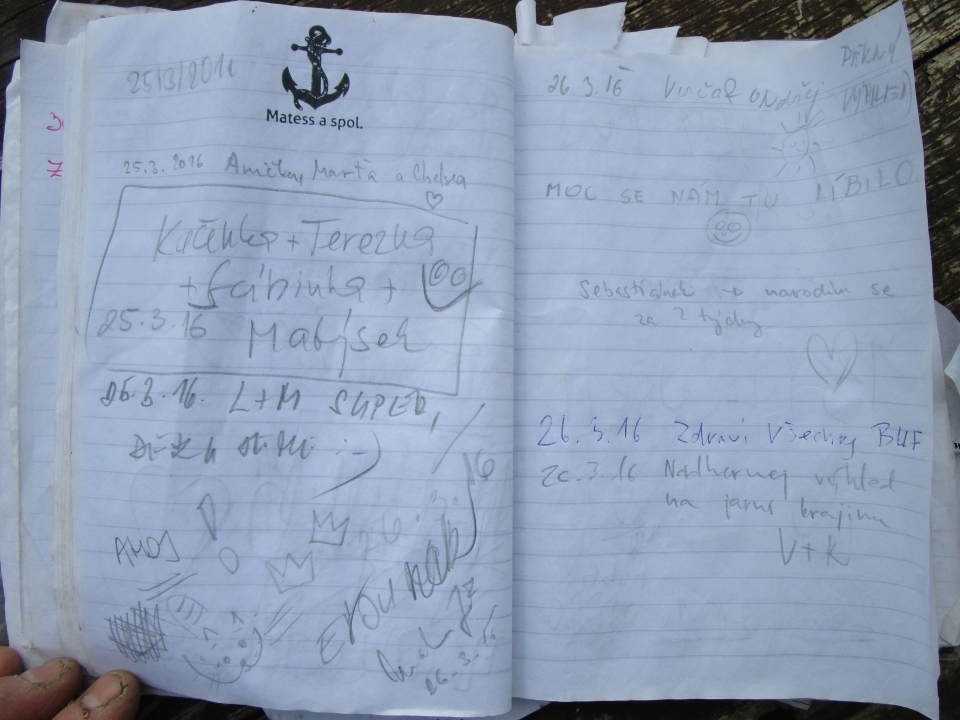 25/3/2016
Matess a spol.
25.3.2016 Anička, Marťa a Chelsea
Kačenka + Terezka
+ Fábinka +
25.3.16 Matýsek
25.3.16. L+M SUPER,
:-)
AHOJ
26.3.16
26.3.16 Ondřej
PĚKNÝ
VÝHLED
MOC SE NÁM TU LÍBILO
Sebastiánek → narodím se
za 2 týdny
26.3.16 Zdraví všechny BUF
26.3.16 Nádhernej výhled
na jarní krajinu
V+K